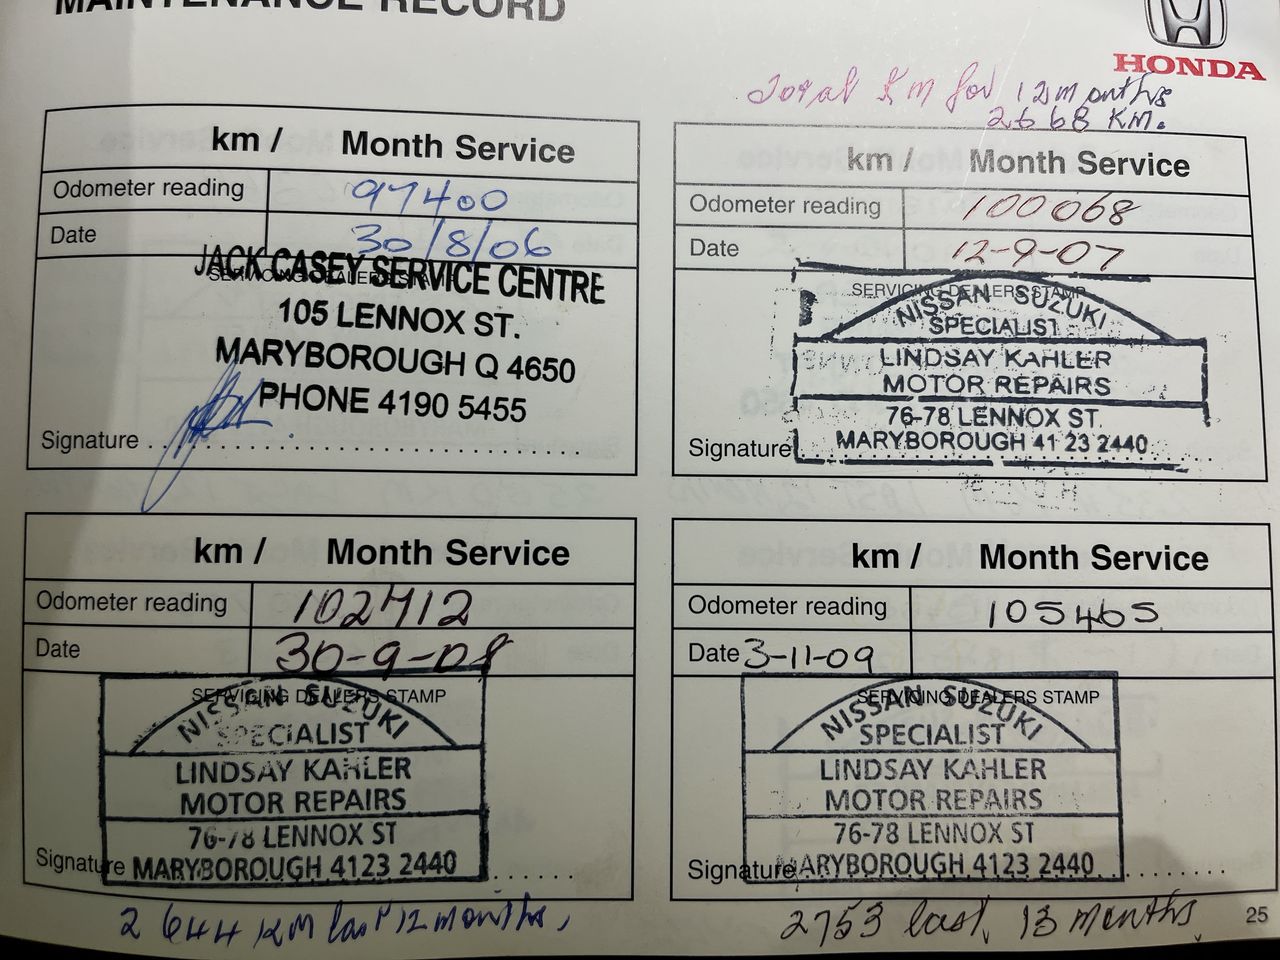 MAINTENANCE RECORD
HONDA
Total KM for 12 months
2668 KM.
km / Month Service
Odometer reading 97400
Date 30/8/06
SERVICING DEALERS STAMP
JACK CASEY SERVICE CENTRE
105 LENNOX ST.
MARYBOROUGH Q 4650
PHONE 4190 5455
Signature
km / Month Service
Odometer reading 100068
Date 12-9-07
SERVICING DEALERS STAMP
NISSAN SUZUKI
SPECIALIST
LINDSAY KAHLER
MOTOR REPAIRS
76-78 LENNOX ST.
MARYBOROUGH 41 23 2440
Signature
km / Month Service
Odometer reading 102712
Date 30-9-08
SERVICING DEALERS STAMP
NISSAN SUZUKI
SPECIALIST
LINDSAY KAHLER
MOTOR REPAIRS
76-78 LENNOX ST
MARYBOROUGH 4123 2440
Signature
2644 KM last 12 months,
km / Month Service
Odometer reading 105465
Date 3-11-09
SERVICING DEALERS STAMP
NISSAN SUZUKI
SPECIALIST
LINDSAY KAHLER
MOTOR REPAIRS
76-78 LENNOX ST
MARYBOROUGH 4123 2440
Signature
2753 last 13 months
25